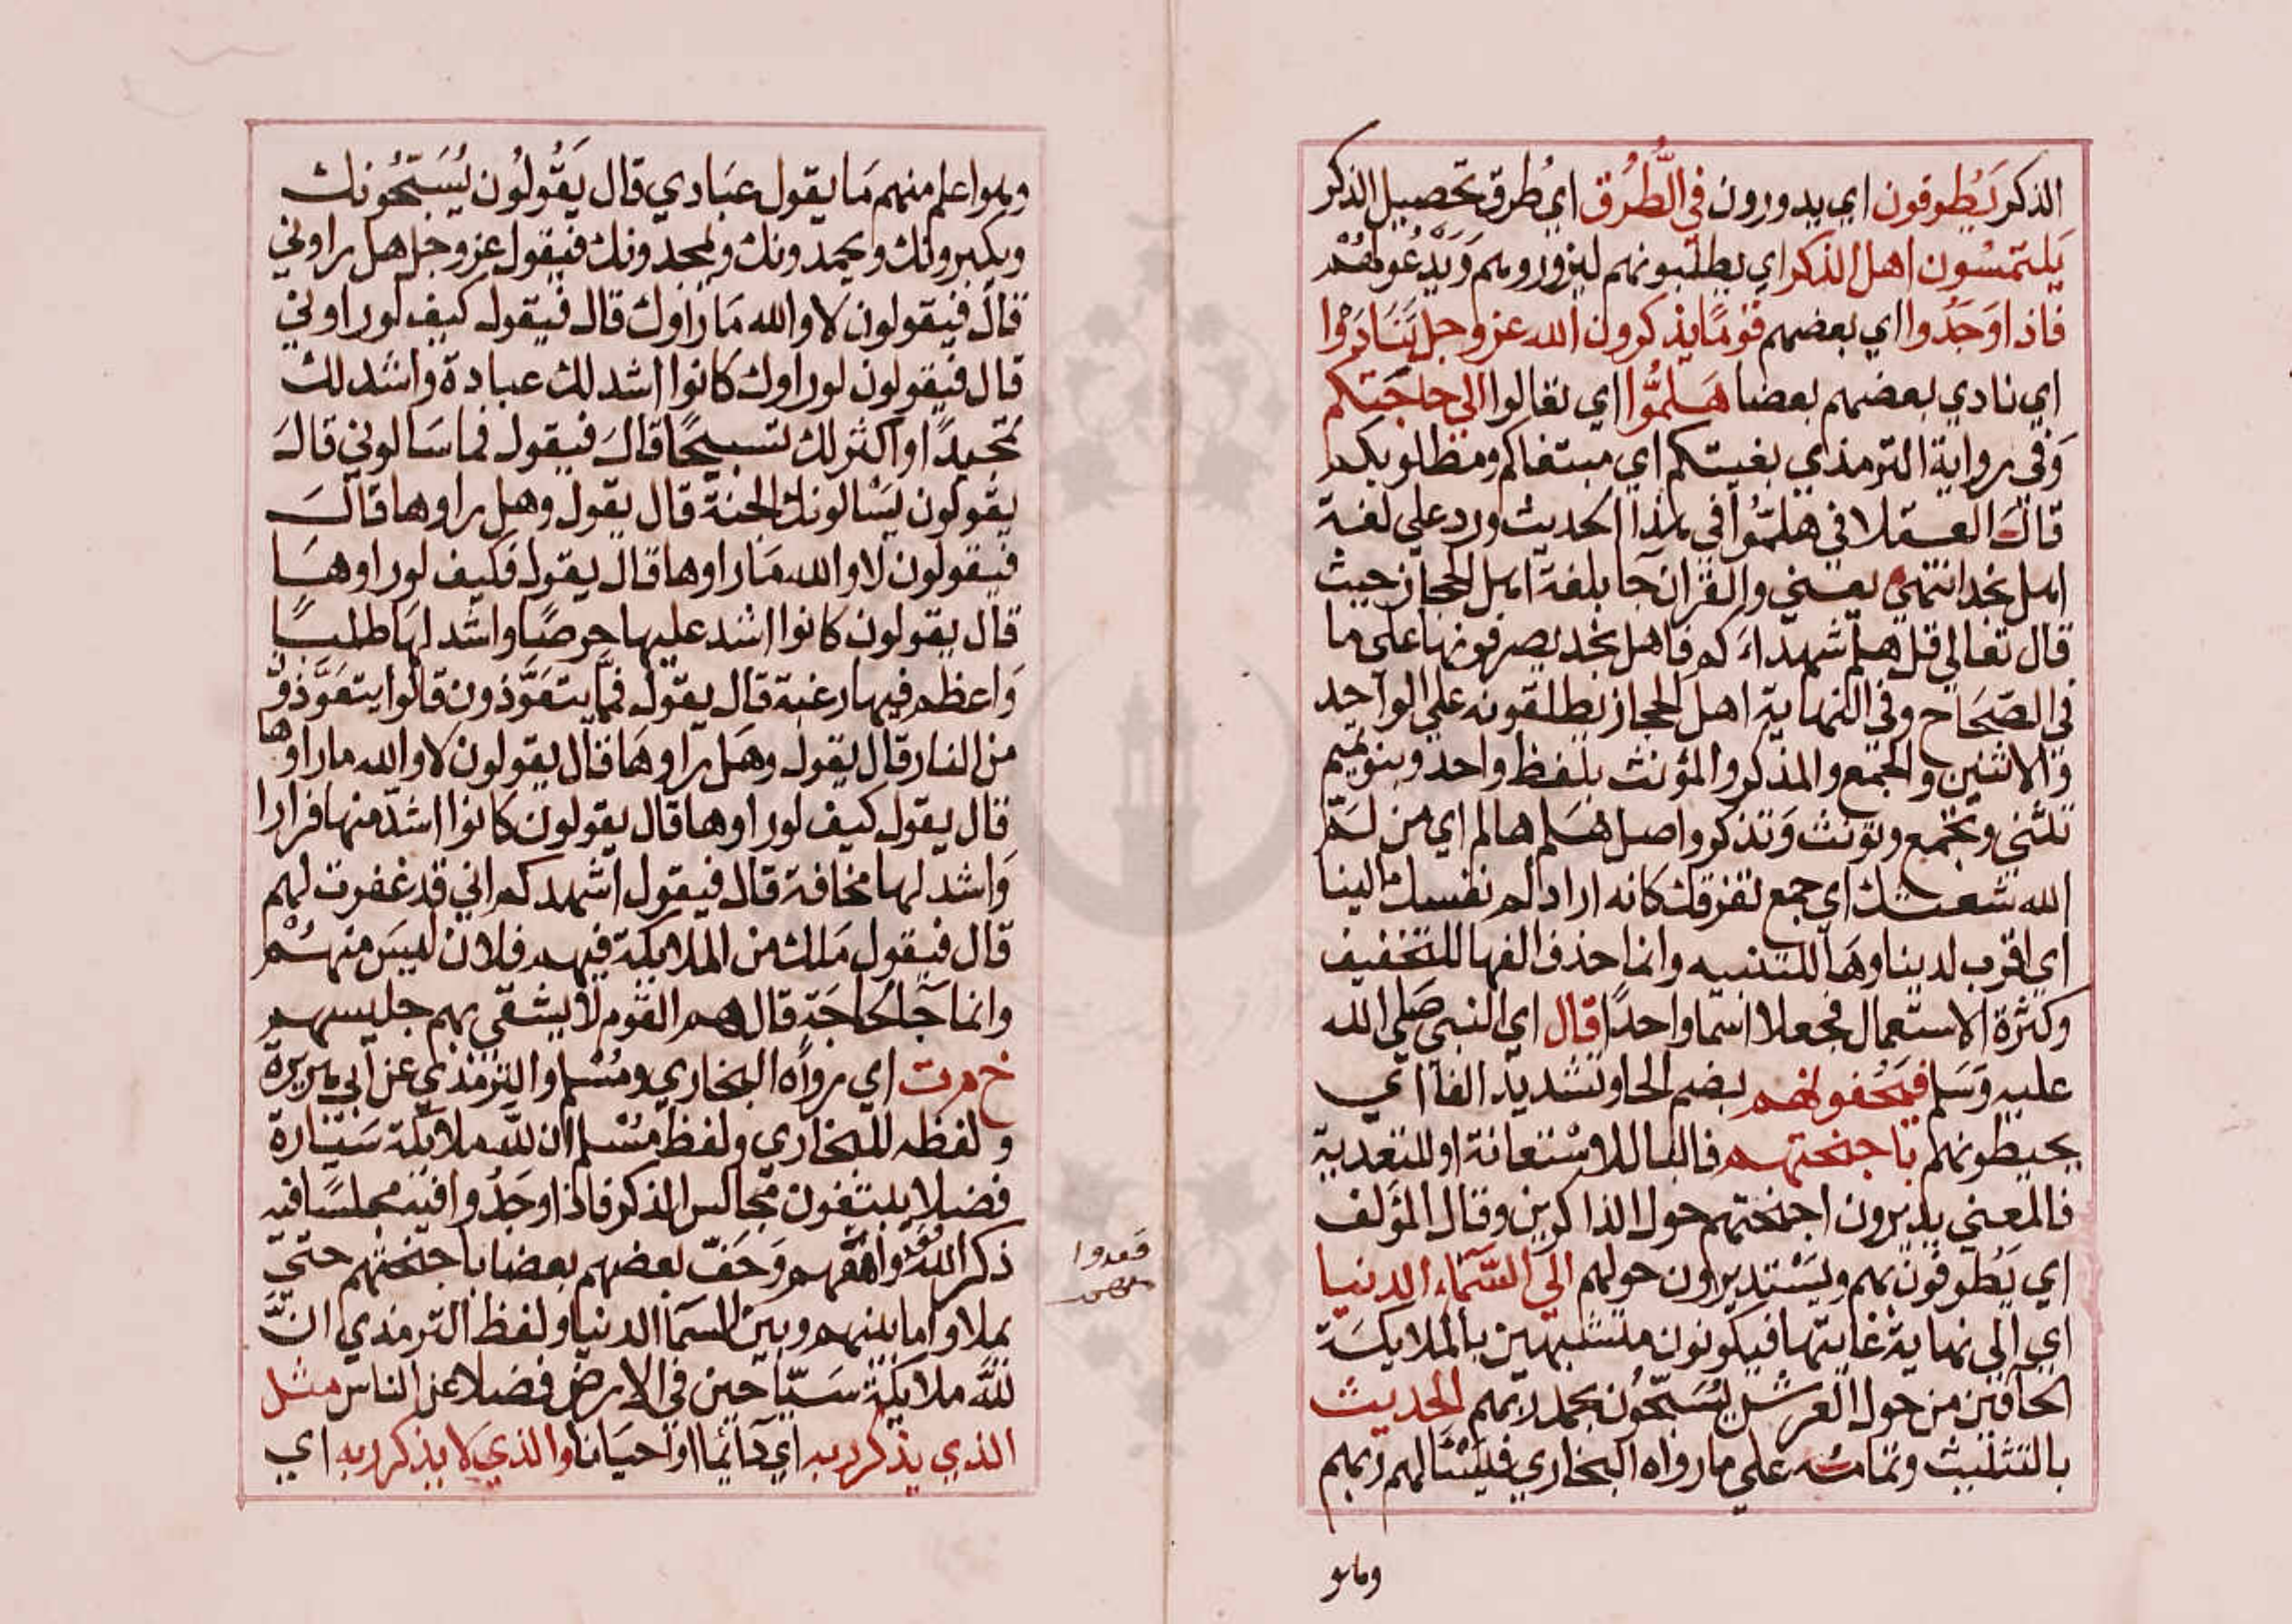 الذكر يَطوفون اي يدورون في الطُّرُق اي طرق تحصيل الذكر
يَلتمسُون اهل الذكر اي يطلبونهم ليزوروهم وَيَدْعُو لهُمْ
فاذا وَجَدُوا اي بعضهم قومًا يذكرون الله عز وجل تَنَادَوْا
اي نادي بعضهم بعضا هَلمُّوا اي تعالوا الي حاجتكم
وَفي رواية الترمذي بغيتكم اي مبتغاكم ومطلوبكم
قالَ العسقلاني هلمُّوا في هذا الحديث ورد علي لغة
اهل نجد انتهي يعني والقران جا بلغة اهل الحجاز حيث
قال تعالي قل هلم شهداءَكم فاهل نجد يصرفونها علي ما
في الصّحَاح وفي النهاية اهل الحجاز يطلقونه علي الواحد
والاثنين والجمع والمذكر والمؤنث بلفظ واحد وبنو تميم
تثني وتجمع وتونث وَتذكر واصل هَلم هالم اي من لمَّ
الله شعثك اي جمع تفرقك كانه اراد لم نفسك الينا
اي اقرب لدينا وهَا للتنبيه وانما حذف الفها للتخفيف
وكثرة الاستعمال فجعلا اسما واحدًا قال اي النبي صَلي الله
عليه وَسَلم فيَحُفونهم بضم الحا وتشديد الفا اي
يحيطونهم باجنحتهم فالبا للاسْتعانة او للتعدية
فالمعني يديرون اجنحتهم حول الذاكرين وقال المؤلف
اي يَطوفون بهم ويَسْتديرون حولهم الي السَّمَاء الدنيا
اي الي نهاية غايتها فيكونون متشبهين بالملايكَة
الحافين من حول العرش يُسَبّحُون بحمد ربهم الحديث
بالتثليث وتمامُه علي ما رواه البخاري فيَسْالهم ربهم
وهو
وهوا علم منهم مَا يقول عبَادي قال يَقُولُون يُسَبّحُونك
ويكبرونك ويحمدونك ويمجدونك فيقول عز وجل هل راوني
قالَ فيقولون لا والله مَا رَاوك قال فيقول كيف لو راوني
قال فيقولون لو راوك كانوا اشد لك عبادة واشد لك
تمجيدًا واكثر لك تسبيحًا قالَ فيقول فما سَالوني قالَ
يقولون يَسْالونك الجنة قال يقول وهل راوها قالَ
فيقولون لا والله مَا راوها قال يقول فكيف لو راوهَا
قال يقولون كانوا اشد عليها حرصًا واشد لهَا طلبًا
وَاعظم فيها رغبة قال يقول فمَّا يتعَوّذون قالوا يتعَوَّذون
من النار قال يقول وهَل راوهَا قال يقولون لا والله ما راوها
قال يقول كيف لو راوها قال يقولون كانوا اشدّ منها فرارا
وَاشد لها مخافة قال فيقول اشهدكم اني قد غفرت لهم
قال فيقول مَلك من الملايكة فيهم فلان ليسَ منهُمْ
وانما جَا لحَاجَة قال هم القوم لا يشقي بهم جليسهم
خ م ت اي رواه البخاري ومُسْلم والترمذي عن ابي هريرة
ولفظه للبخاري ولفظ مسْلم ان للّه ملايكة سَيّارة
فضلا يبتغون مجالس الذكر فاذا وَجَدُوا فيه مجلسًا فيه
ذكر الله قعدوا معهم وَحَفّ بعضهم بعضا باجنحتهم حتي
يملاوا ما بينهم وبين السمَا الدنيا ولفظ الترمذي انَّ
للّه ملايكة سَيّاحين في الارض فضلا عن الناس مثل
الذي يذكر ربه اي دَائما او احيَانا والذي لا يذكر ربه اي
قعدوا
معهم